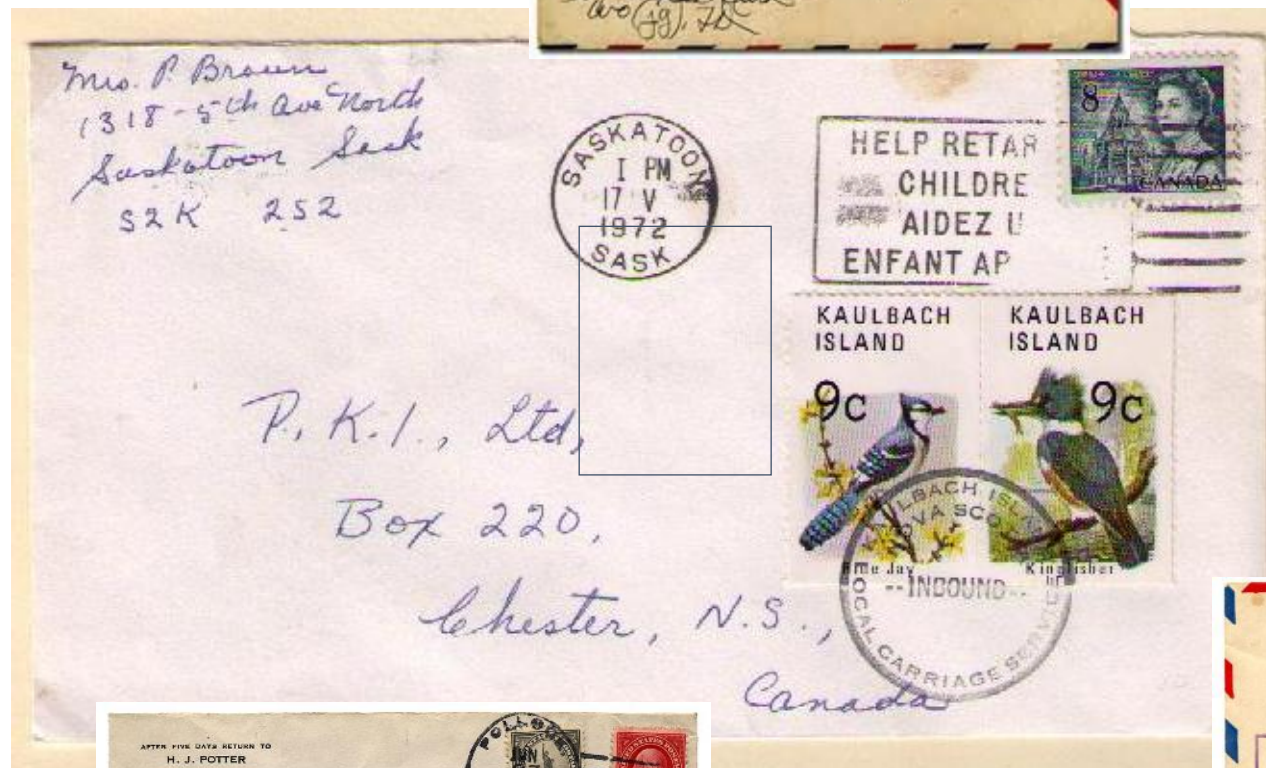 Mrs. P. Brown
1318 - 5th Ave North
Saskatoon Sask
S2K 2S2
SASKATOON
1 PM
17 V
1972
SASK
HELP RETAR
CHILDRE
AIDEZ
ENFANT AP
8
CANADA
KAULBACH
ISLAND
9c
Blue Jay
KAULBACH
ISLAND
9c
Kingfisher
KAULBACH ISLAND
NOVA SCO
--INBOUND--
LOCAL CARRIAGE SERVICE
P.K.I., Ltd,
Box 220,
Chester, N.S.,
Canada
AFTER FIVE DAYS RETURN TO
H. J. POTTER
(jg).